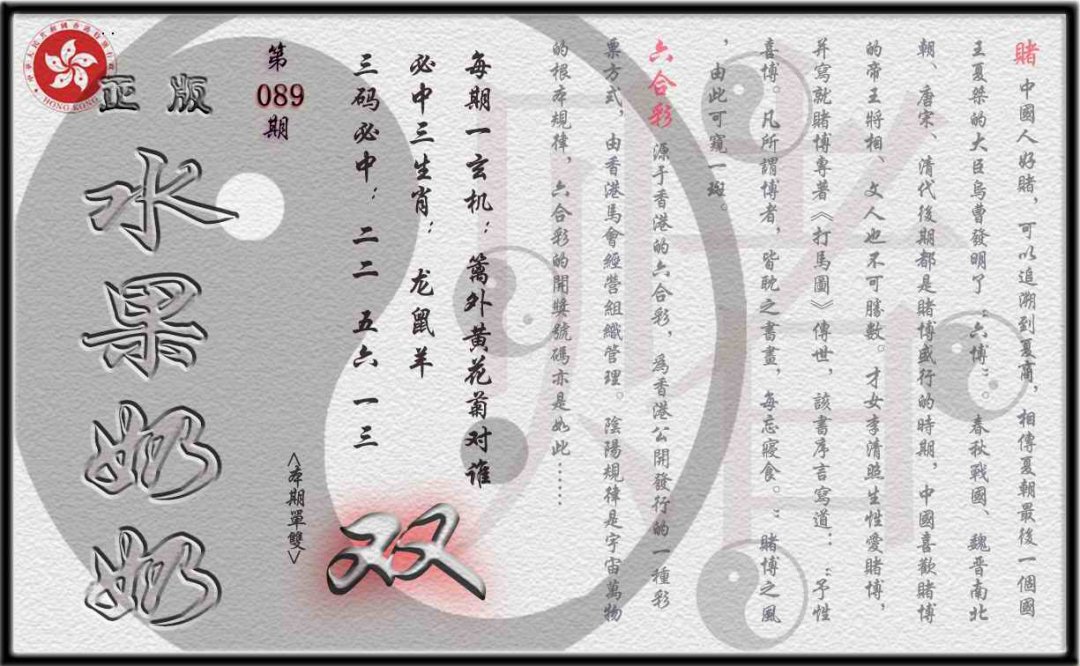 賭 中國人好賭，可以追溯到夏商，相傳夏朝最後一個國
王夏桀的大臣烏曹發明了"六博"。春秋戰國、魏晉南北
朝、唐宋、清代後期都是賭博盛行的時期，中國喜歡賭博
的帝王將相、文人也不可勝數。才女李清照生性愛賭博，
并寫就賭博專著《打馬圖》傳世，該書序言寫道："予性
喜博。凡所謂博者，皆耽之書畫，每忘寢食。"賭博之風
，由此可窺一斑。
六合彩 源于香港的六合彩，為香港公開發行的一種彩
票方式，由香港馬會經營組織管理。陰陽規律是宇宙萬物
的根本規律，六合彩的開獎號碼亦是如此……
每期一玄机：篱外黄花菊对谁
必中三生肖：龙鼠羊
三码必中：二二 五六 一三
双
<本期單雙>
第
089
期
正版
水果奶奶
HONG KONG